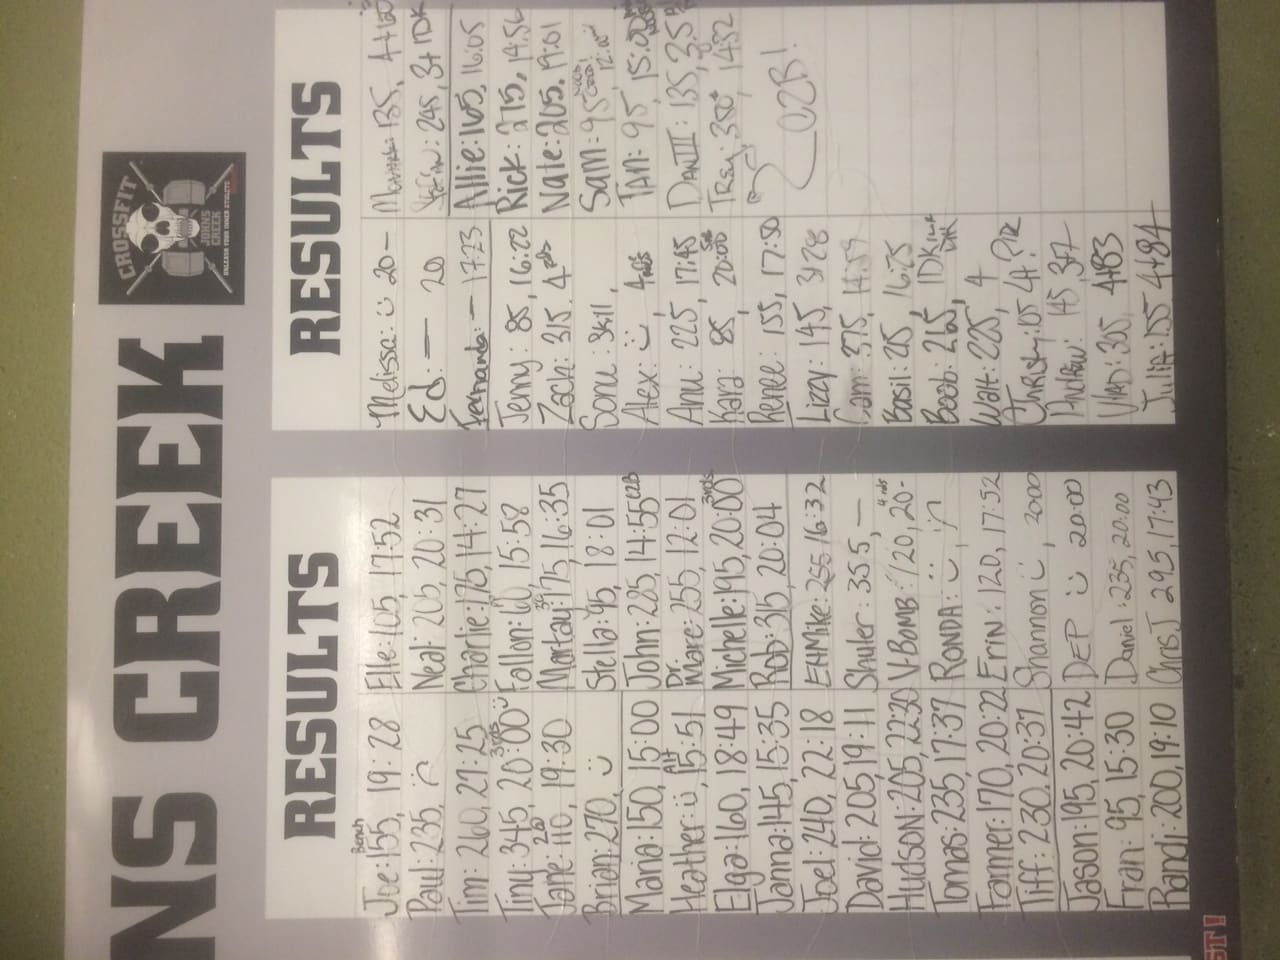 NS CREEK
CROSSFIT
JOHNS
CREEK
UNLEASH YOUR INNER ATHLETE
RESULTS
Bench
Joe: 155, 19:28
Paul: 235, :(
Tim: 260, 27:25
Tiny: 345, 20:00 3rds :)
Jane: 110, 19:30
Brian: 270, :)
Maria: 150, 15:00
Heather: :), 15:51
Elga: 160, 18:49
Janna: 145, 15:35
Joel: 240, 22:18
David: 205, 19:11
Hudson: 205, 22:30
Tomas: 235, 17:37
Farmer: 170, 20:22
Tiff: 230, 20:37
Jason: 195, 20:42
Fran: 95, 15:30
Randi: 200, 19:10
Elle: 105, 17:52
Neal: 205, 20:31
Charlie: 175, 14:27
Fallon: 60, 15:58
175, 16:35
Stella: 95, 18:01
John: 285, 14:55 C2B
Dr.
Marc: 255, 12:01
Michelle: 195, 20:00 3rds
Rob: 315, 20:04
EHMike: 255 16:32
Shuler: 355, —
V-BOMB: 120, 20-
RONDA: :), :)
ERIN: 120, 17:52
Shannon :), 20:00
DEP :) 20:00
Daniel: 235, 20:00
Chris J 295, 17:43
RESULTS
Melissa: :) 20-
Ed: — 20
Fernanda: — 17:23
Jenny: 85, 16:22
Zach: 315, 4 rds
Sonu: Skill,
Alex: :) 4 rds
Ann: 225, 17:45
Kara: 85, 20:00
Renee: 155, 17:50
Lizzy: 145, 3+28
Cam: 375, 14:59
Basil: 215 16:25
Boob: 265, IDK
Walt: 225, 4
Christy: 105 4
Andrew: 145, 3+7
VIAD: 305 4+83
Julia: 155 4+84
245, 3+ IDK
Allie: 165, 16:05
Rick: 275, 14:56
Nate: 205, 19:01
Sam: 95, 12:00
IAN: 95, 15:00
DANIII: 135, 3.5
Trey: 350, 14:52
C2B!
ST!